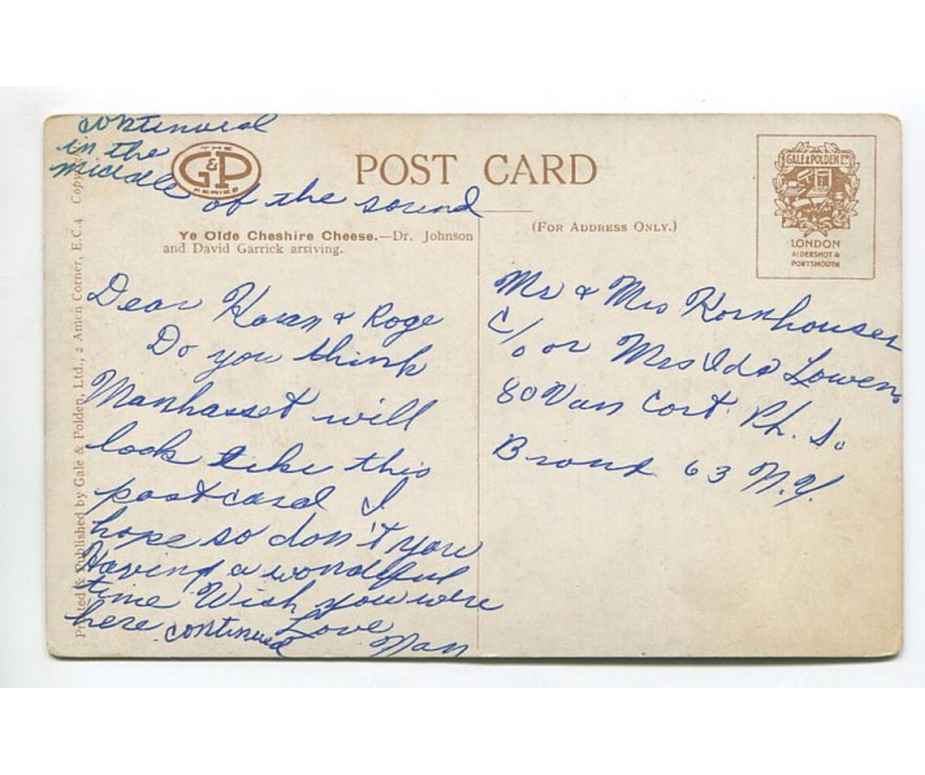 continued
in the
middle of the sound
THE
G&P
SERIES
POST CARD
Ye Olde Cheshire Cheese.—Dr. Johnson
and David Garrick arriving.
(For Address Only.)
GALE & POLDEN LTD
LONDON
ALDERSHOT &
PORTSMOUTH
Printed & Published by Gale & Polden, Ltd., 2 Amen Corner, E.C.4
Dear Karen & Roge
Do you think
Manhasset will
look like this
postcard I
hope so don't you
Having a wonderful
time Wish you were
here continued Love
Nan
Mr & Mrs Kornhouser
c/o or Mrs Ida Lowen
80 Van Cort. Pk. So
Bronx 63 N.Y.